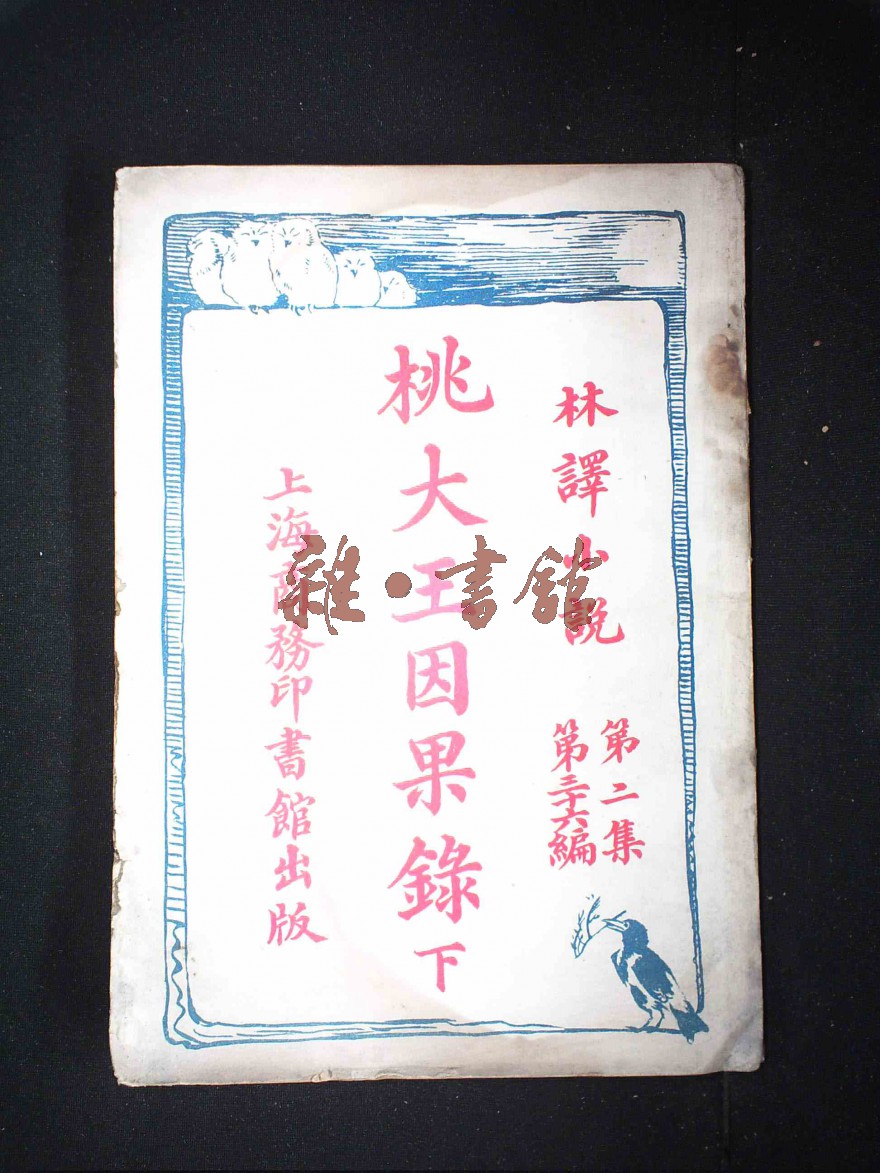 林譯小說
第二集
第三十六編
桃大王因果錄下
上海商務印書館出版
雜·書館